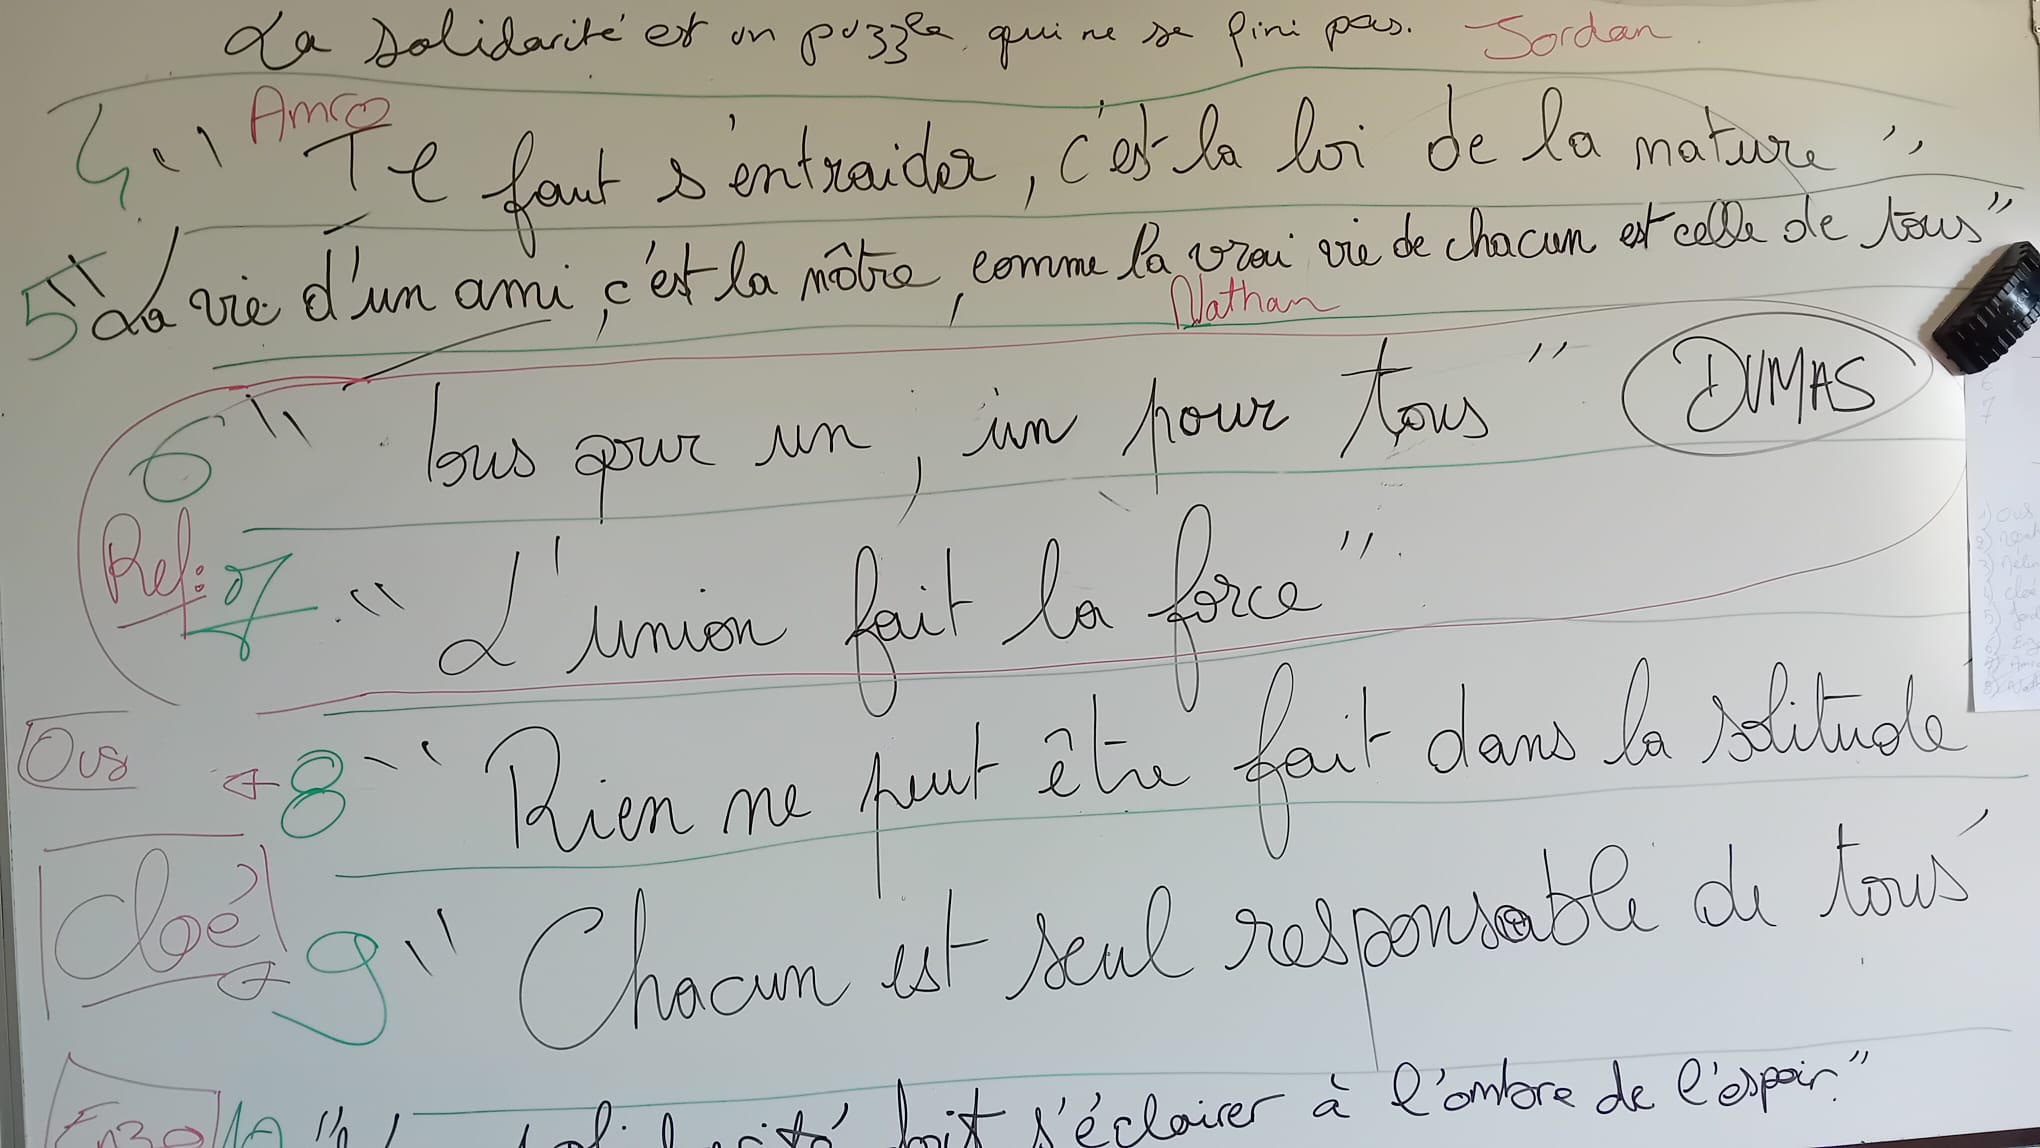 La solidarité est un puzzle qui ne se fini pas. Jordan
Amro
4 " Il faut s'entraider, c'est la loi de la nature "
5 " La vie d'un ami, c'est la nôtre, comme la vrai vie de chacun est celle de tous "
Nathan
6 " Tous pour un, un pour tous " DUMAS
Ref: 7 " L'union fait la force ".
Ous 8 " Rien ne peut être fait dans la solitude
Cloé 9 " Chacun est seul responsable de tous
Enzo 10 " solidarité doit s'éclairer à l'ombre de l'espoir. "